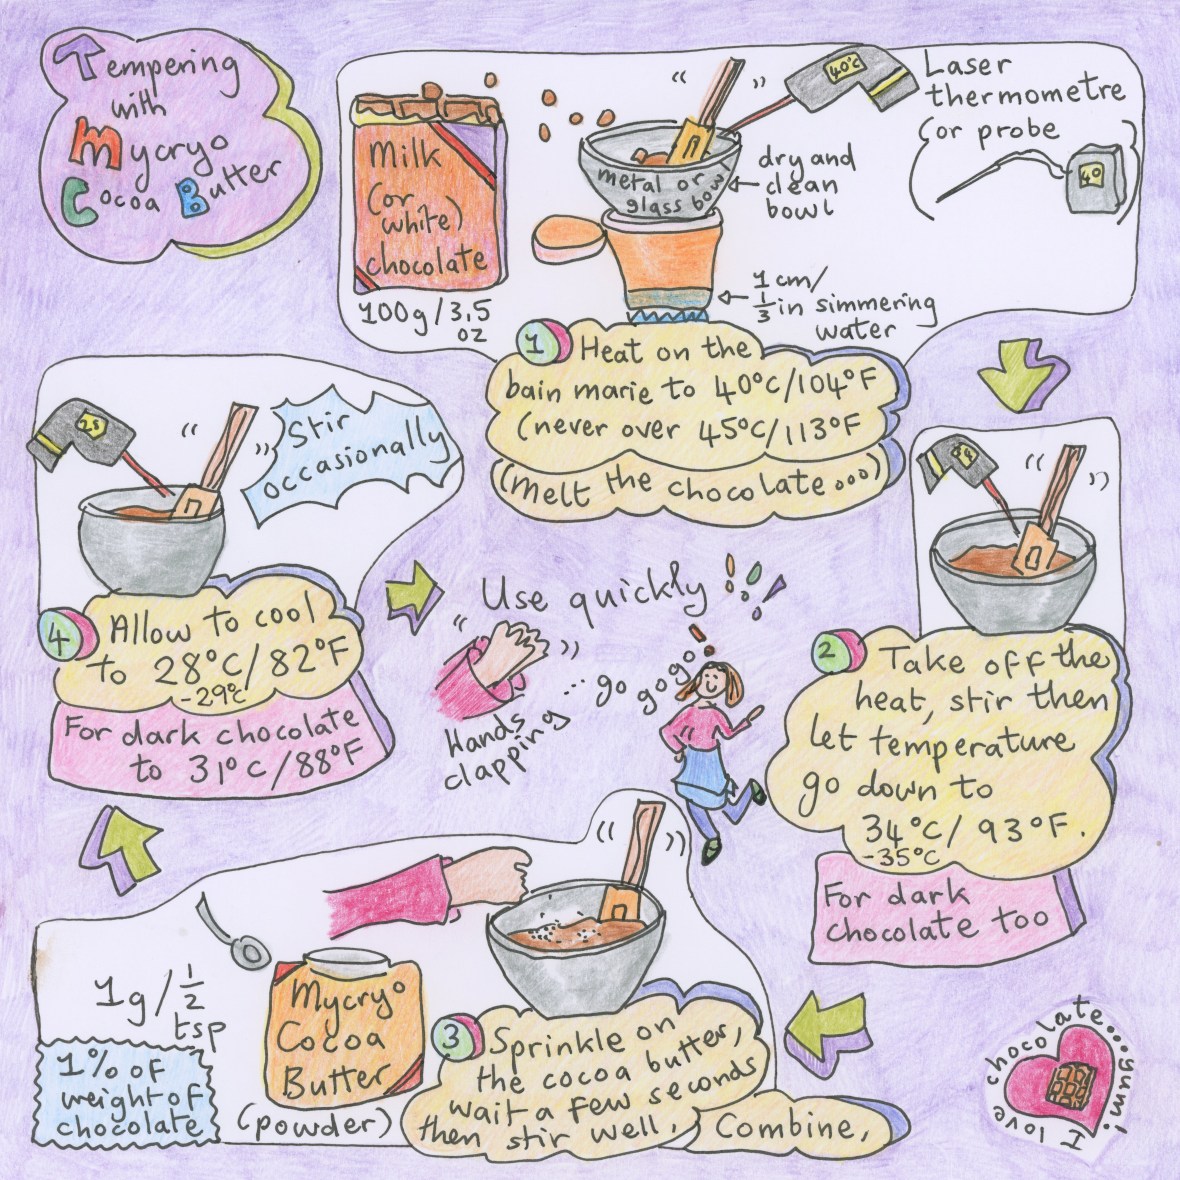 Tempering
with
Mycryo
Cocoa Butter
Milk
(or
white)
chocolate
100g/3.5
oz
40°C
Laser
thermometre
(or probe)
40
metal or
glass bowl
dry and
clean
bowl
1 cm/
1/3 in simmering
water
1 Heat on the
bain marie to 40°C/104°F
(never over 45°C/113°F
(melt the chocolate...)
34
2 Take off the
heat, stir then
let temperature
go down to
34°C/93°F.
-35°C
For dark
chocolate too
Mycryo
Cocoa
Butter
(powder)
1g/1/2
tsp
1% of
weight of
chocolate
3 Sprinkle on
the cocoa butter,
wait a few seconds
then stir well.
Combine,
28
Stir
occasionally
4 Allow to cool
to 28°C/82°F
-29°C
For dark chocolate
to 31°C/88°F
Use quickly !
Hands
clapping
... go go go!
I love chocolate...yum!